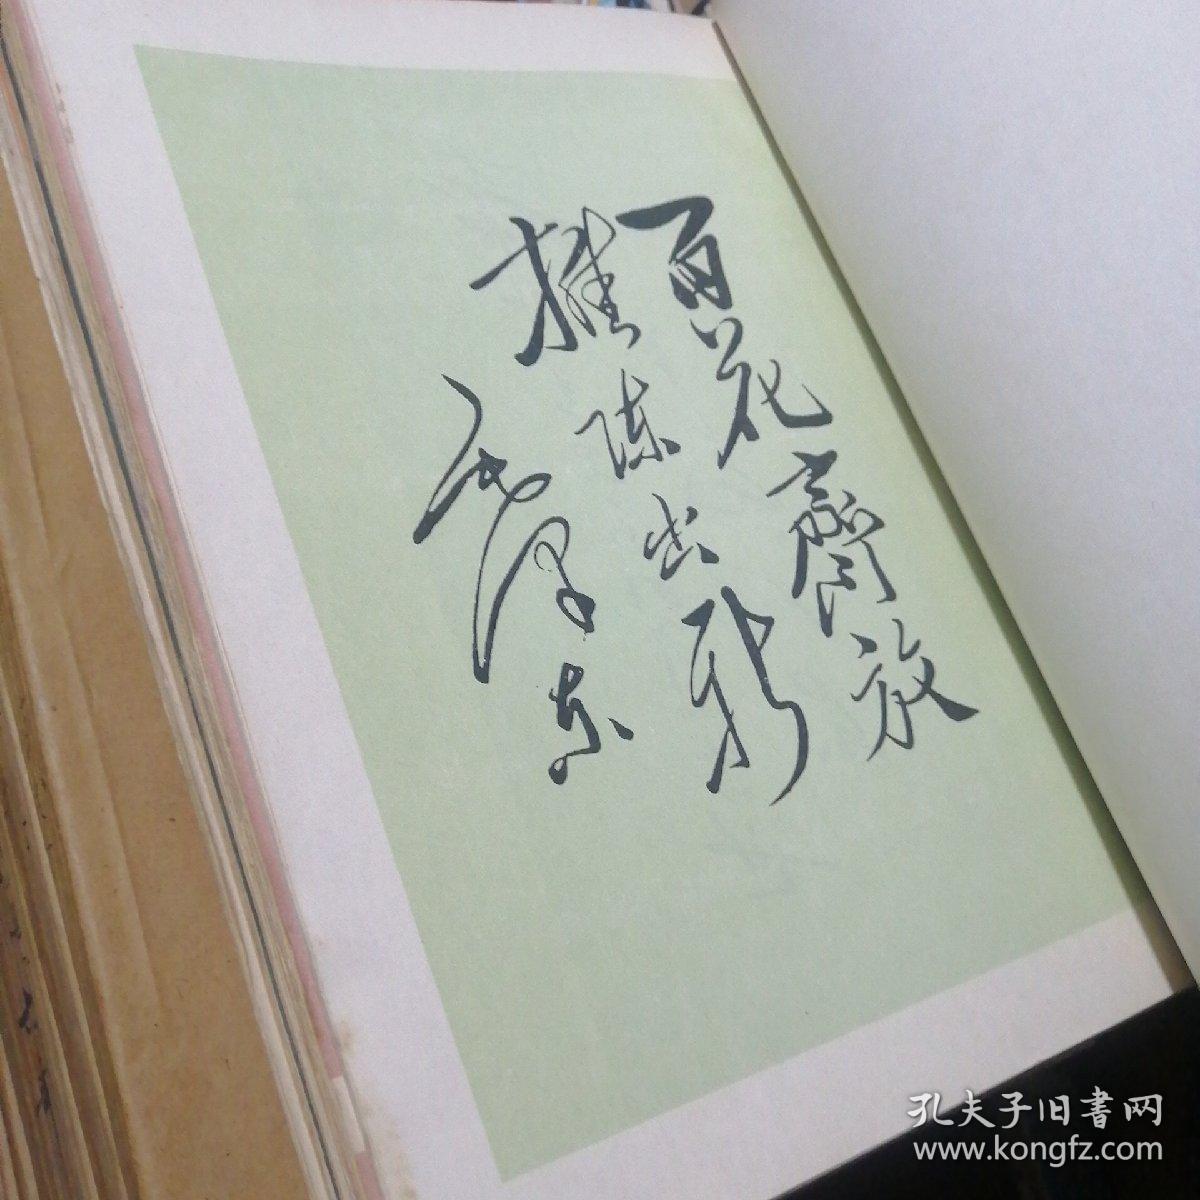 百花齊放
推陈出新
毛澤东
孔夫子旧書网
www.kongfz.com